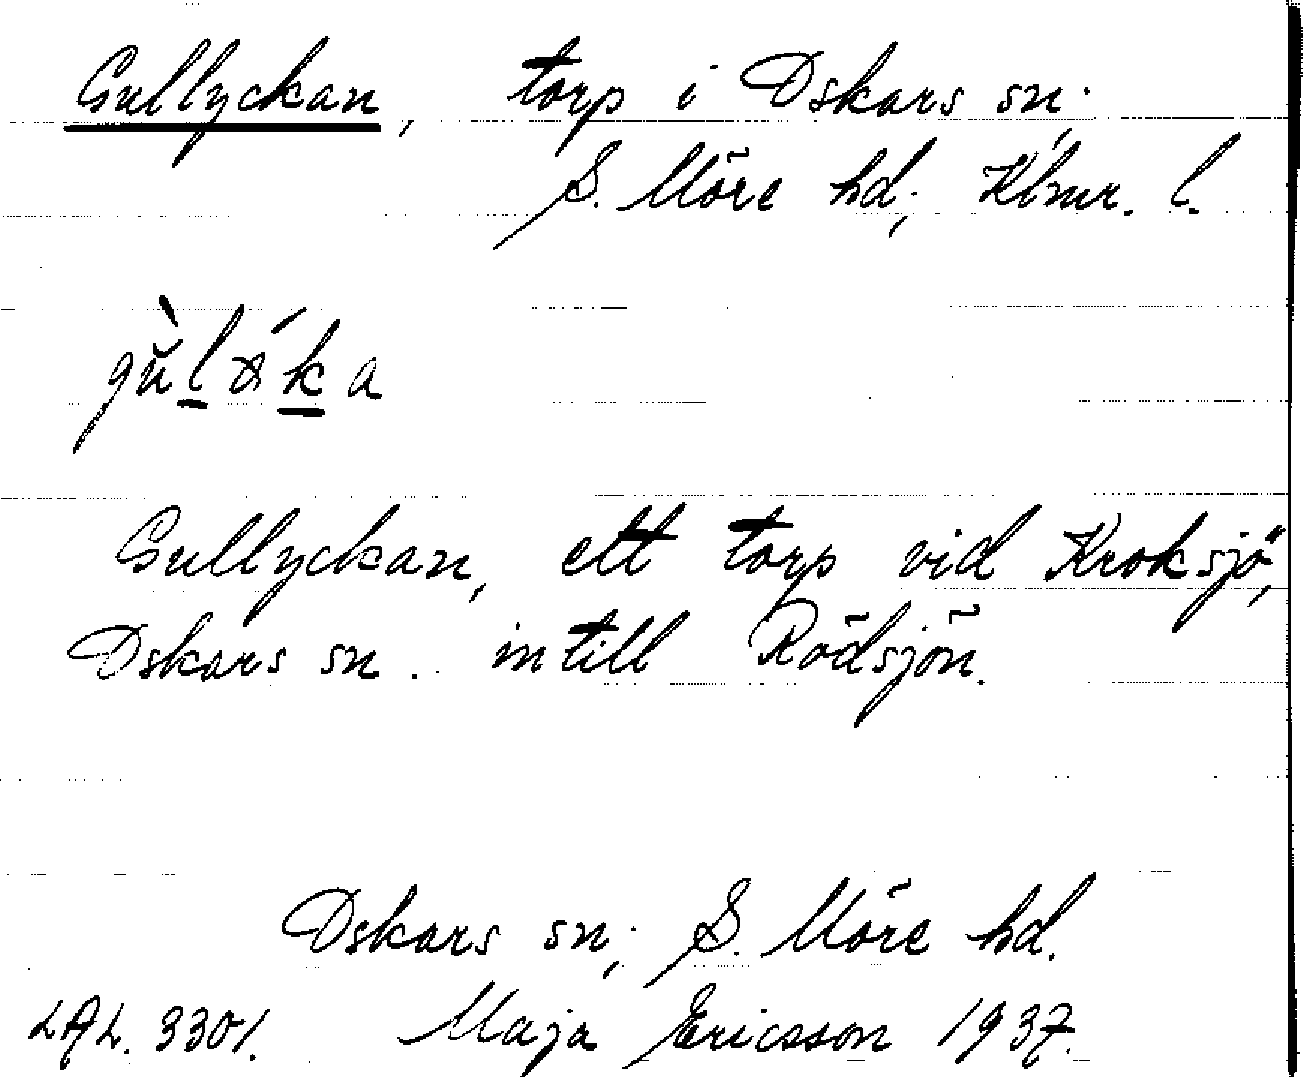 Gullyckan, torp i Oskars sn.
S. Möre hd; Klmr. l.
Gullyckan, ett torp vid Kroksjö,
Oskars sn. intill Rödsjön.
Oskars sn; S. Möre hd.
LAL. 3301. Maja Ericsson 1937.